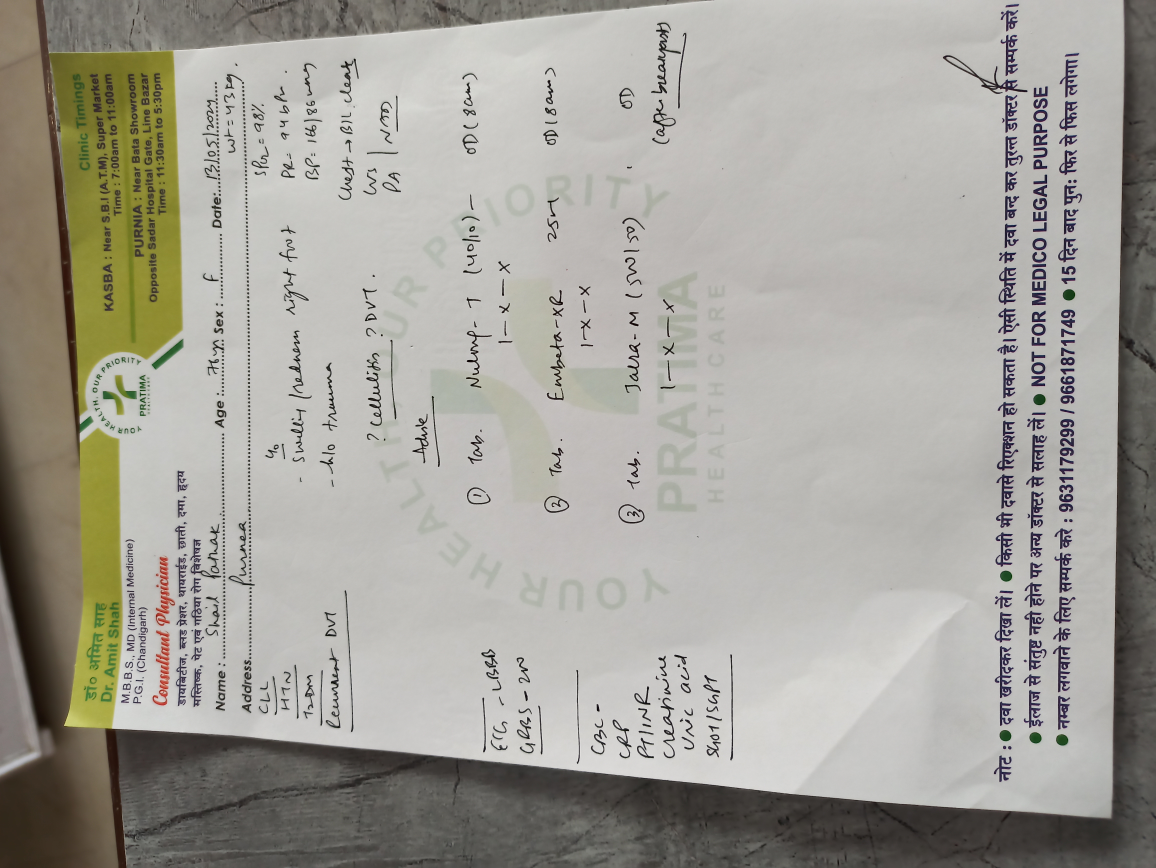 डॉ० अमित साह
Dr. Amit Shah
M.B.B.S., MD (Internal Medicine)
P.G.I. (Chandigarh)
Consultant Physician
डायबिटीज, ब्लड प्रेशर, थायराईड, छाती, दमा, हृदय
मस्तिष्क, पेट एवं गठिया रोग विशेषज्ञ
YOUR HEALTH, OUR PRIORITY
PRATIMA
Clinic Timings
KASBA : Near S.B.I (A.T.M), Super Market
Time : 7:00am to 11:00am
PURNIA : Near Bata Showroom
Opposite Sadar Hospital Gate, Line Bazar
Time : 11:30am to 5:30pm
Name : Shail Pathak Age : Sex : F Date: 13/05/2024
Address Purnea wt = 43 kg.
CLL
HTN
T2DM
Recurrent DVT
c/o
- Swelling/redness right foot
- h/o trauma
? Cellulitis ? DVT.
SPO2 = 98%
PR = 94 bpm.
BP = 166/86 mmHg
Chest → B/L clear
CVS
PA | NAD
Advise
① Tab. (40/10) — OD (8am)
1 — x — x
② Tab. Embeta-XR 25mg OD (8am)
1 - x - x
③ Tab. Jalra-M (500/50) OD
1 — x — x (after breakfast)
ECG - LBBB
GRBS - 200
CBC -
CRP
PT/INR
Creatinine
Uric acid
SGOT/SGPT
YOUR HEALTH OUR PRIORITY
PRATIMA
HEALTHCARE
नोट : ● दवा खरीदकर दिखा लें। ● किसी भी दवासे रिएक्शन हो सकता है। ऐसी स्थिति में दवा बन्द कर तुरन्त डॉक्टर से सम्पर्क करें।
● ईलाज से संतुष्ट नही होने पर अन्य डॉक्टर से सलाह लें। ● NOT FOR MEDICO LEGAL PURPOSE
● नम्बर लगवाने के लिए सम्पर्क करे : 9631179299 / 9661871749 ● 15 दिन बाद पुन: फिर से फिस लगेगा।